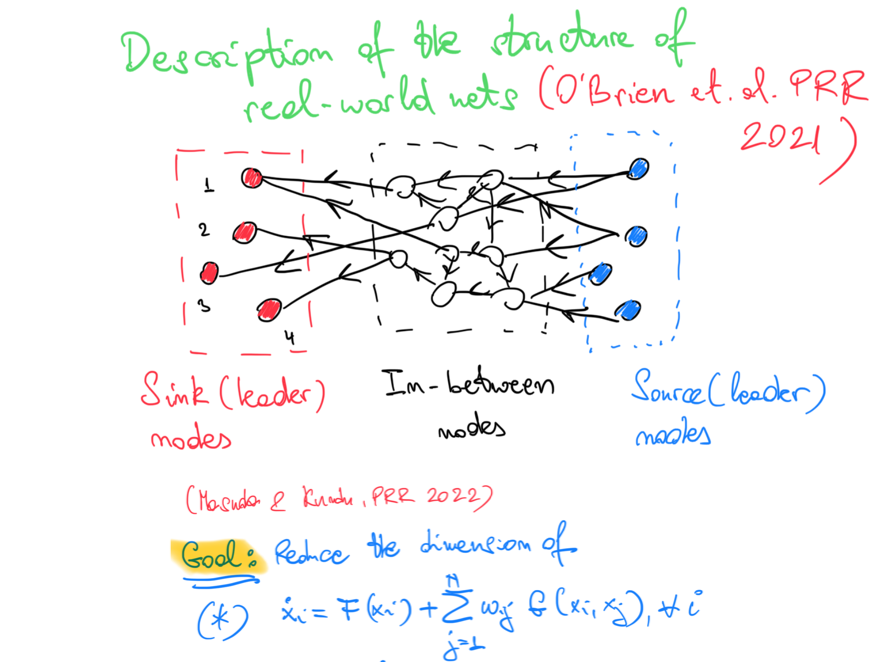 Description of the structure of
real-world nets (O'Brien et. al. PRR
2021)
1
2
3
4
Sink (leader)
nodes
In-between
nodes
Source (leader)
nodes
(Masuda & Kundu, PRR 2022)
Goal: Reduce the dimension of
(*) ẋᵢ = F(xᵢ) + ∑ⱼ₌₁ᴺ wᵢⱼ G(xᵢ, xⱼ), ∀ i